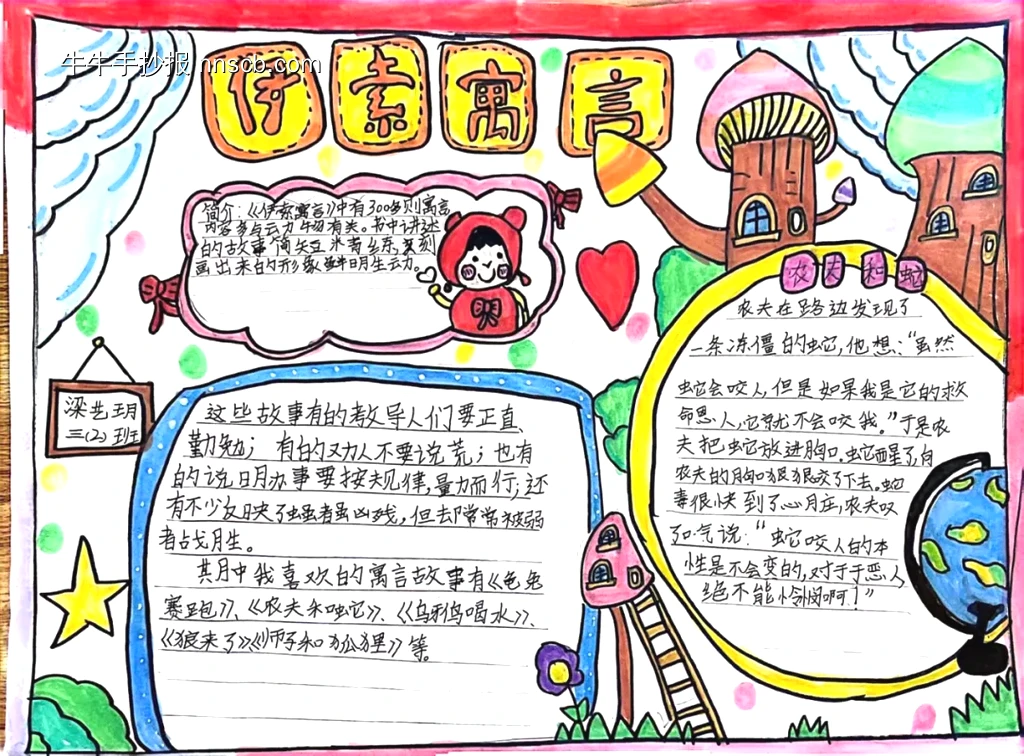 牛牛手抄报 nnscb.com
伊索寓言
简介:《伊索寓言》中有300多则寓言
内容多与动物有关。书中讲述
的故事简短精悍,刻
画出来的形象鲜明生动。
梁艺玥
三(2)班
这些故事有的教导人们要正直、
勤勉;有的劝人不要说荒;也有
的说明办事要按规律,量力而行;还
有不少反映了强者虽凶残,但却常常被弱
者战胜。
其中我喜欢的寓言故事有《龟兔
赛跑》、《农夫和蛇》、《乌鸦喝水》、
《狼来了》《狮子和狐狸》等。
农夫和蛇
农夫在路边发现了
一条冻僵的蛇,他想:“虽然
蛇会咬人,但是如果我是它的救
命恩人,它就不会咬我。”于是农
夫把蛇放进胸口。蛇醒了,向
农夫的胸口狠狠咬了下去。蛇
毒很快到了心脏,农夫叹
了口气说:“蛇咬人的本
性是不会变的,对于恶人,
绝不能怜悯啊!”